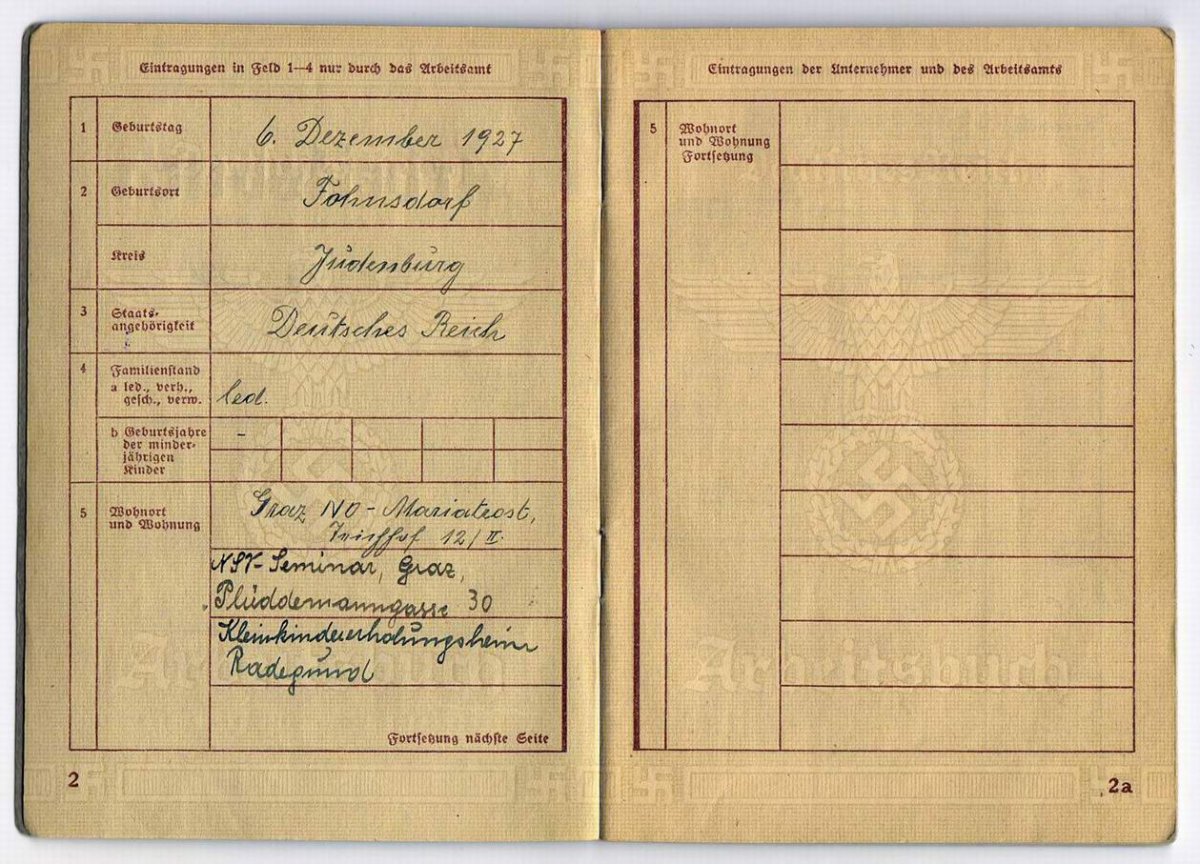 Eintragungen in Feld 1—4 nur durch das Arbeitsamt
1 Geburtstag 6. Dezember 1927
2 Geburtsort Fohnsdorf
Kreis Judenburg
3 Staats-
angehörigkeit Deutsches Reich
4 Familienstand
a led., verh.,
gesch., verw. led.
b Geburtsjahre -
der minder-
jährigen
Kinder
5 Wohnort
und Wohnung
Graz NO - Mariatrost,
12/II.
NSV-Seminar, Graz,
Plüddemanngasse 30
Kleinkindererholungsheim
Radegund
Fortsetzung nächste Seite
2
Eintragungen der Unternehmer und des Arbeitsamts
5 Wohnort
und Wohnung
Fortsetzung
2a
Arbeitsbuch
Arbeitsbuch